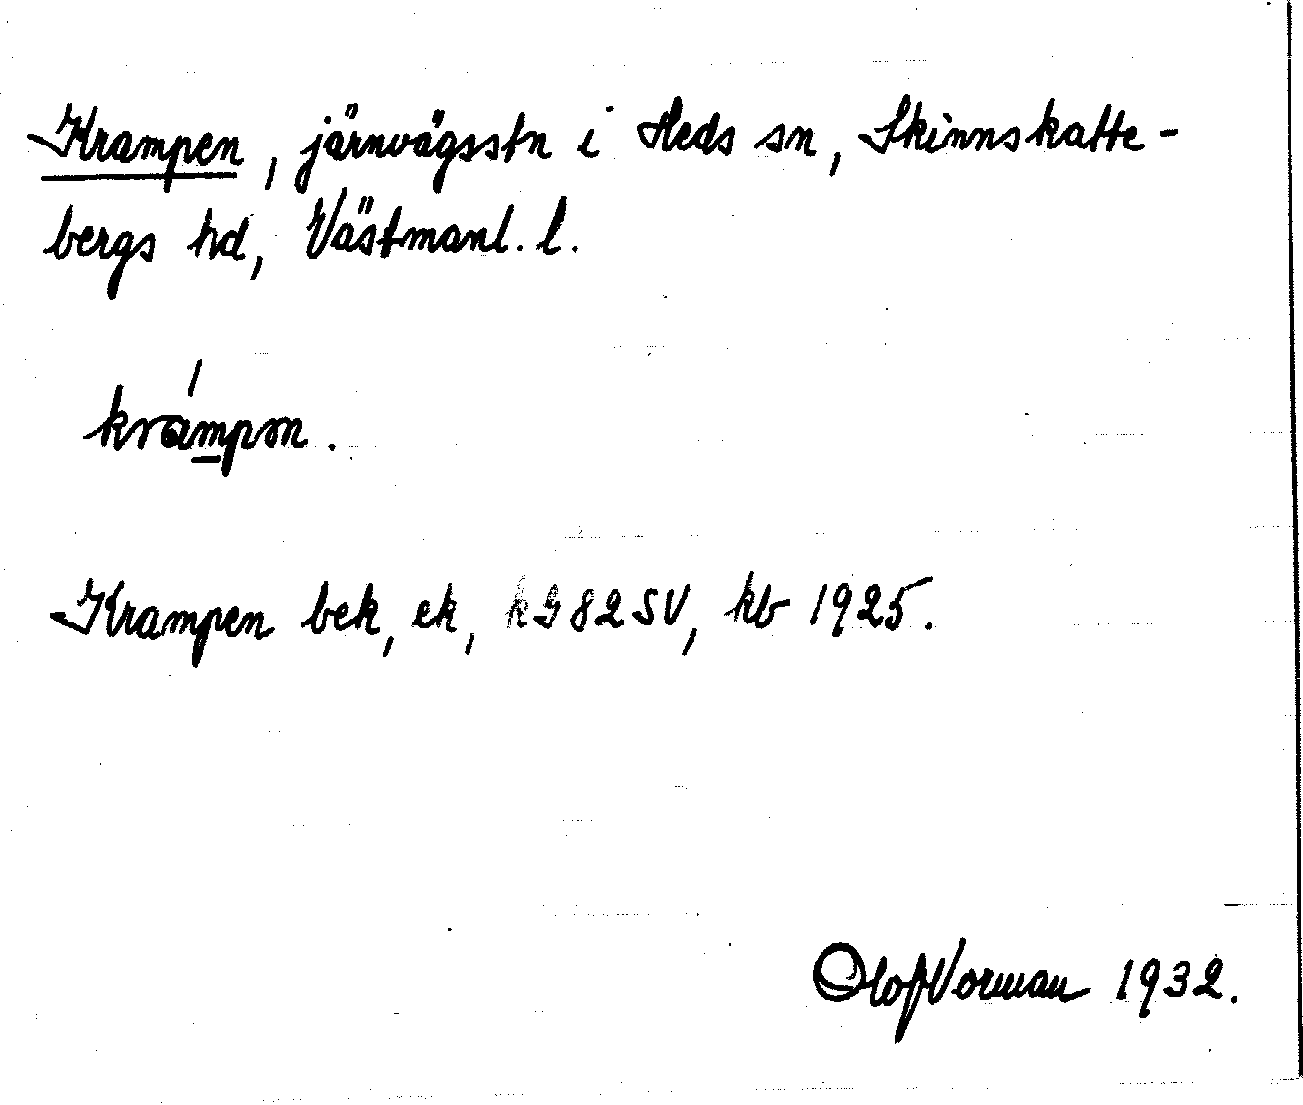 Krampen, järnvägsstn i Heds sn, Skinnskatte-
bergs hd, Västmanl. l.
krampen.
Krampen bek, ek, kG82SV, kb 1925.
Olof Vorman 1932.